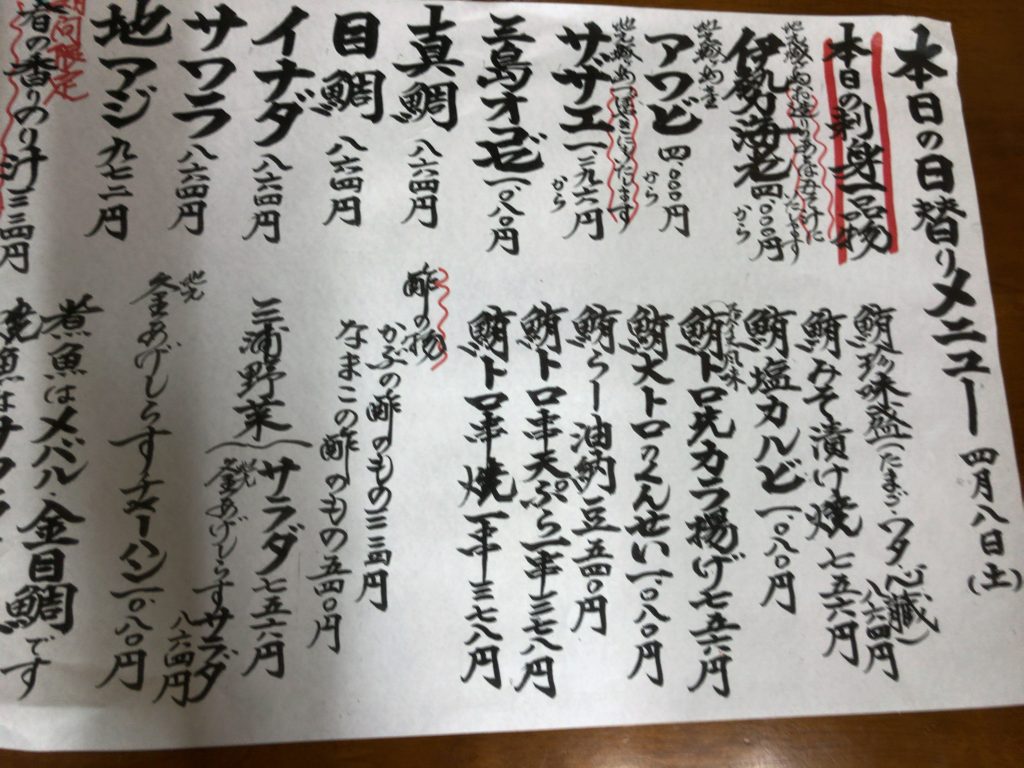 本日の日替りメニュー 四月八日(土)
本日の刺身一品物
伊勢海老 四、〇〇〇円から
アワビ 四、〇〇〇円から
サザエ 一、二九六円から
三島オコゼ 一、〇八〇円
真鯛 八六四円
目鯛 八六四円
イナダ 八六四円
サワラ 八六四円
地アジ 九七二円
期間限定
春の香りのり汁 三二四円
鮪珍味盛(たまご・ワタ・心臓) 八六四円
鮪みそ漬け焼 七五六円
鮪塩カルビ 一、〇八〇円
鮪トロ先カラ揚げ 七五六円
鮪大トロのくんせい 一、〇八〇円
鮪らー油納豆 五四〇円
鮪トロ串天ぷら一串 三七八円
鮪トロ串焼一串 三七八円
酢の物
かぶの酢のもの 三二四円
なまこの酢のもの 五四〇円
三浦野菜
サラダ 七五六円
地元釜あげしらすサラダ 八六四円
地元釜あげしらすチャーハン 一、〇八〇円
煮魚はメバル・金目鯛です
焼魚はサワラ